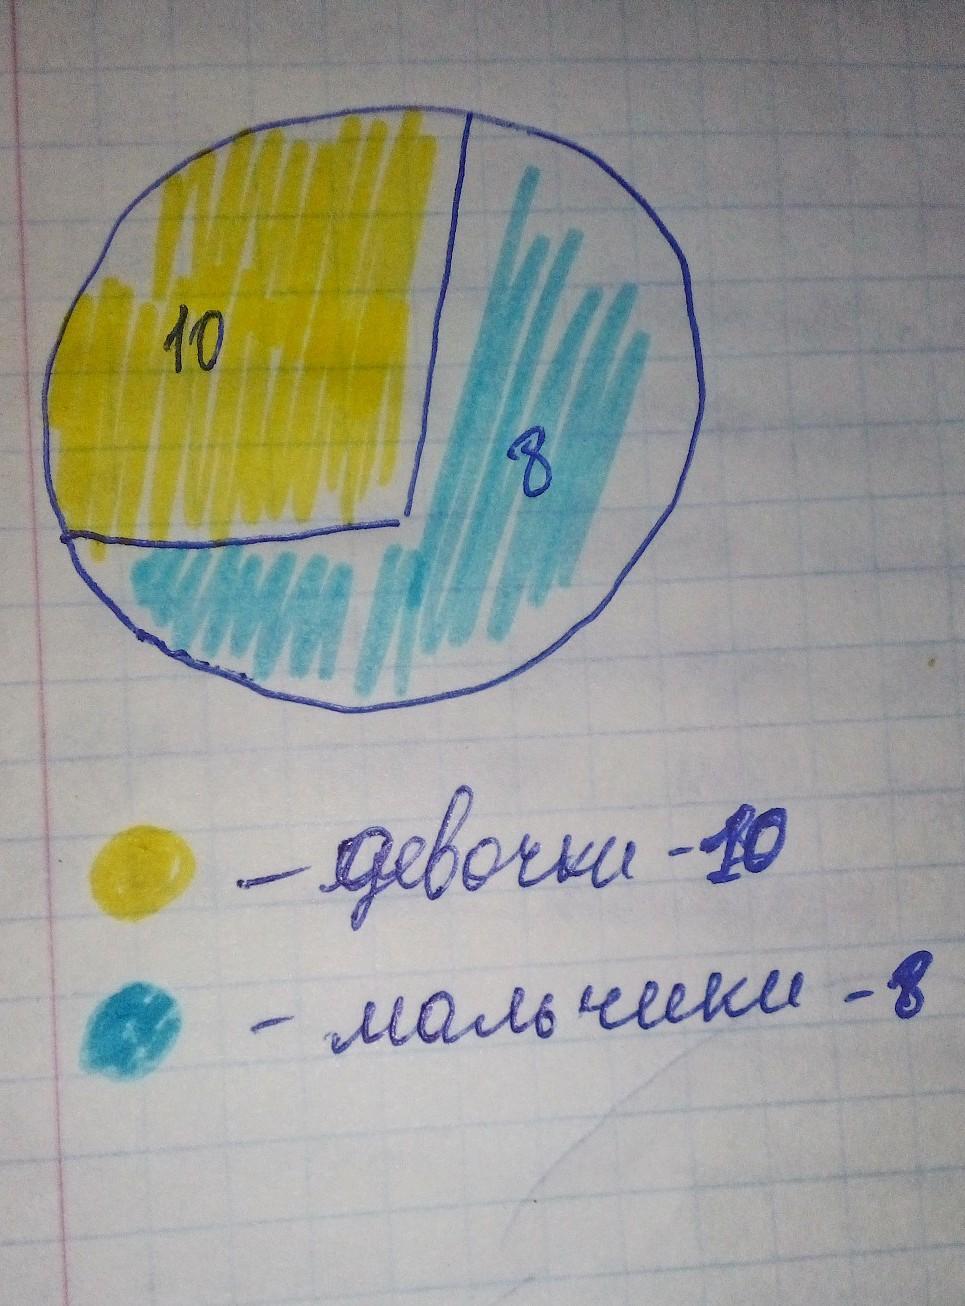 10
8
- девочки - 10
- мальчики - 8